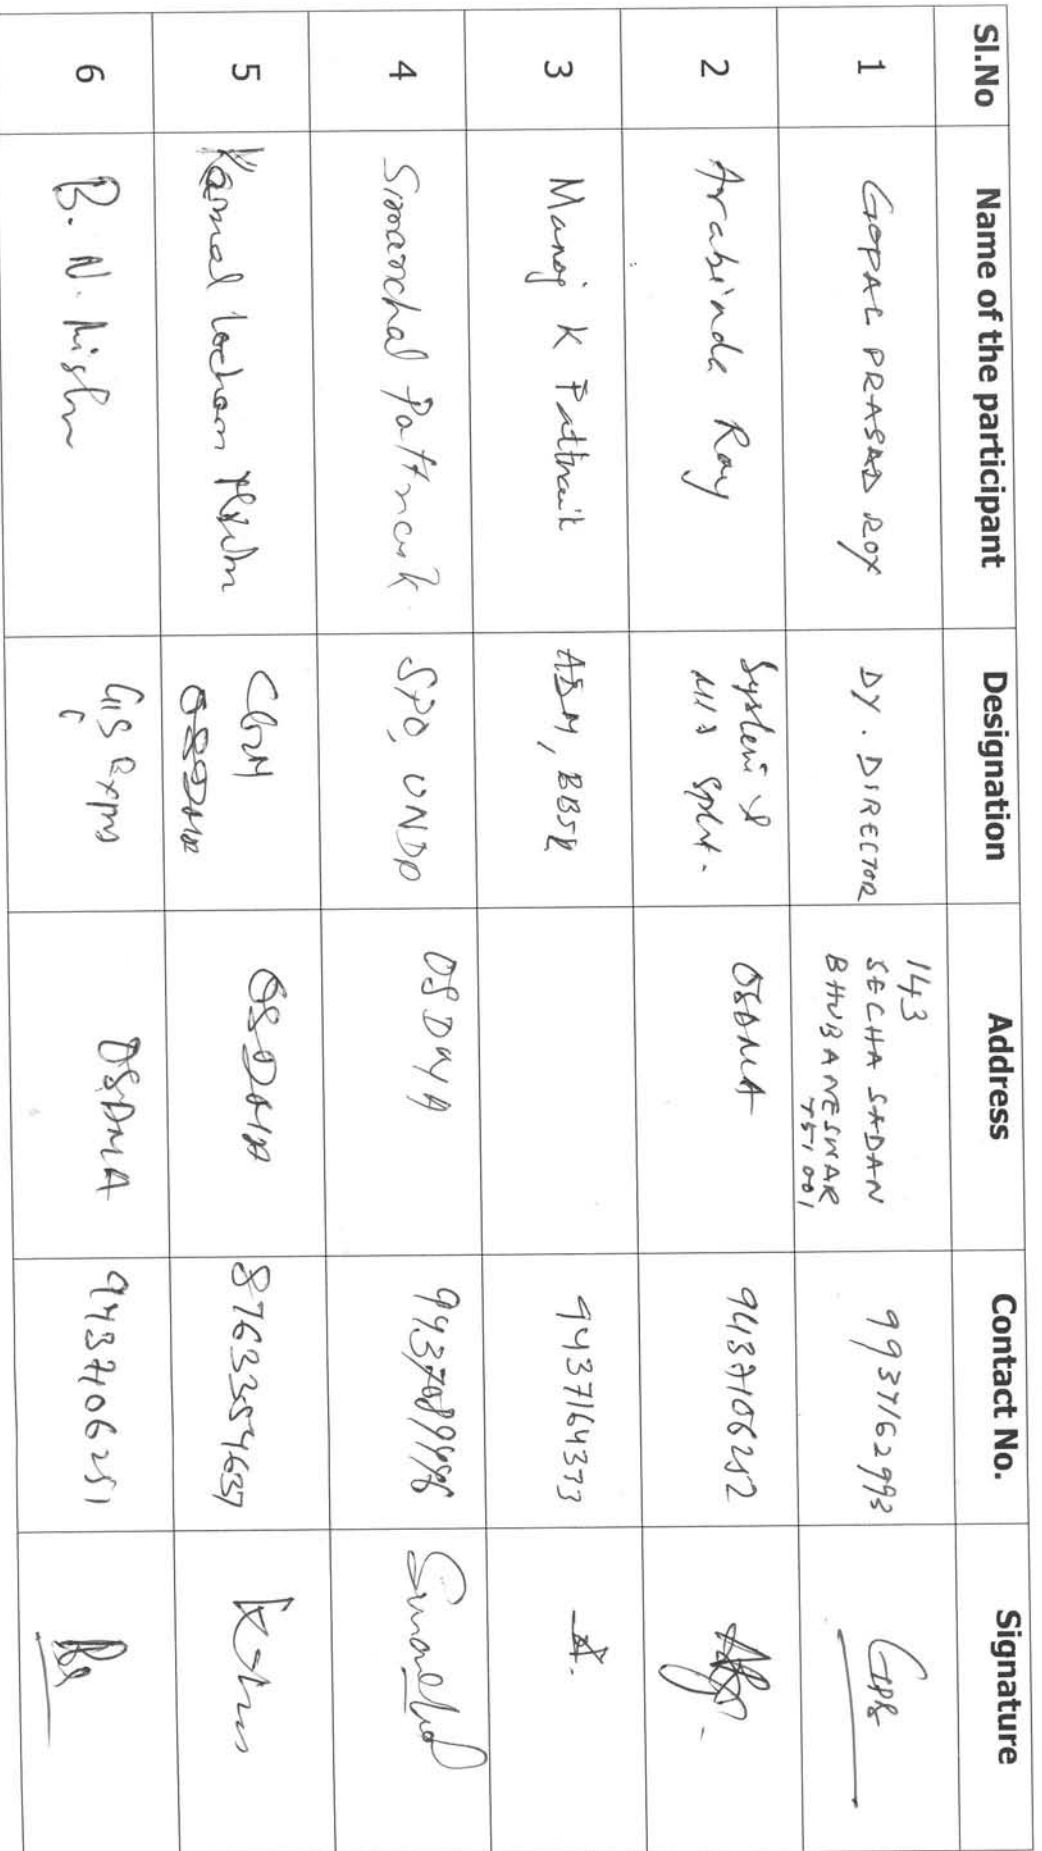 Sl.No Name of the participant Designation Address Contact No. Signature
1 GOPAL PRASAD ROY DY. DIRECTOR 143 SECHA SADAN BHUBANESWAR 751001 9937162993 GPR
2 Arabinda Ray System & MIS Splst. OSDMA 9437106252
3 Manoj K Pattnaik ADM, BBSR 9437164373
4 Simanchal Pattnaik SPO, UNDP OSDMA
5 Kamal Lochan OSDMA OSDMA
6 B. N. Mishra GIS OSDMA 9437106251